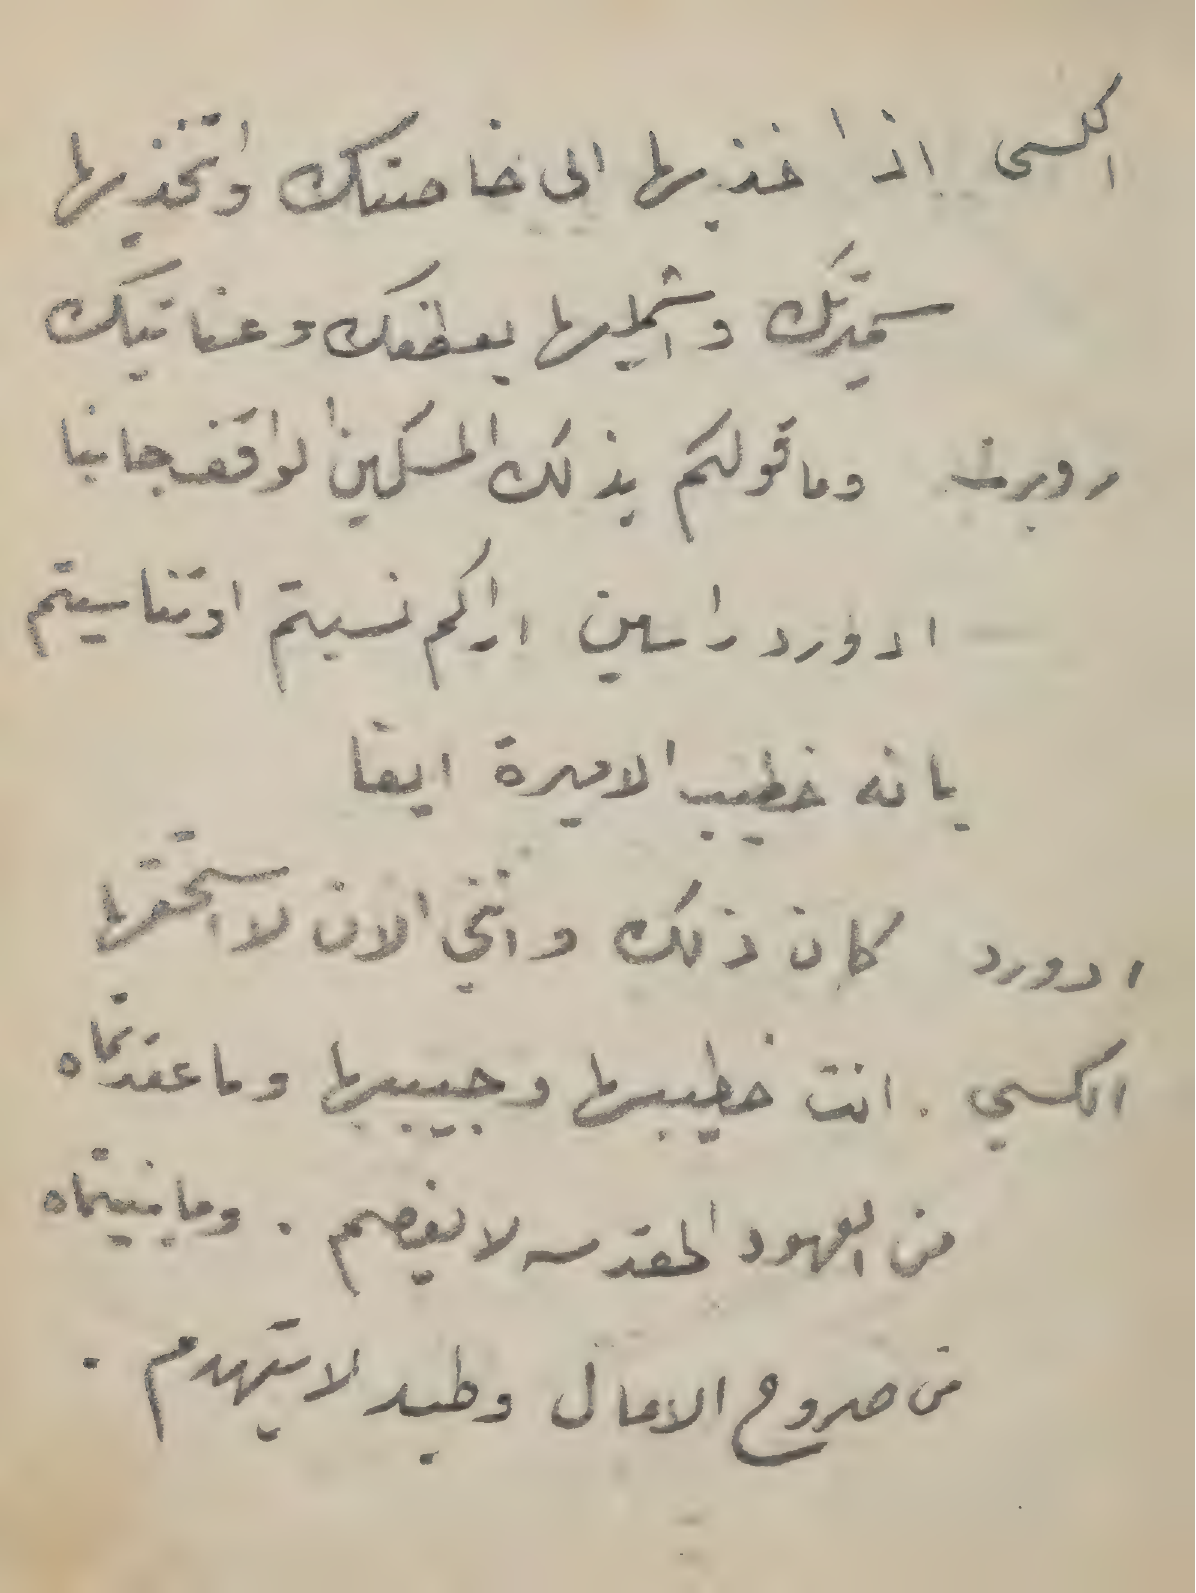 الكسي اذا خذيها الى خاصتك واتخذيها
سميرتك واشمليها بعطفك وعنايتك
روبرت وما قولكم بذلك المسكين الواقف جانبا
ادورد راسين اراكم نسيتم او تناسيتم
بانه خطيب الاميرة ايضا
ادورد كان ذلك وانني الان لا استحقها
الكسي . انت خطيبها وحبيبها وما عقدتماه
من العهود المقدسه لا يفصم . وما بنيتماه
من صروح الامال وطيد لا يتهدم .